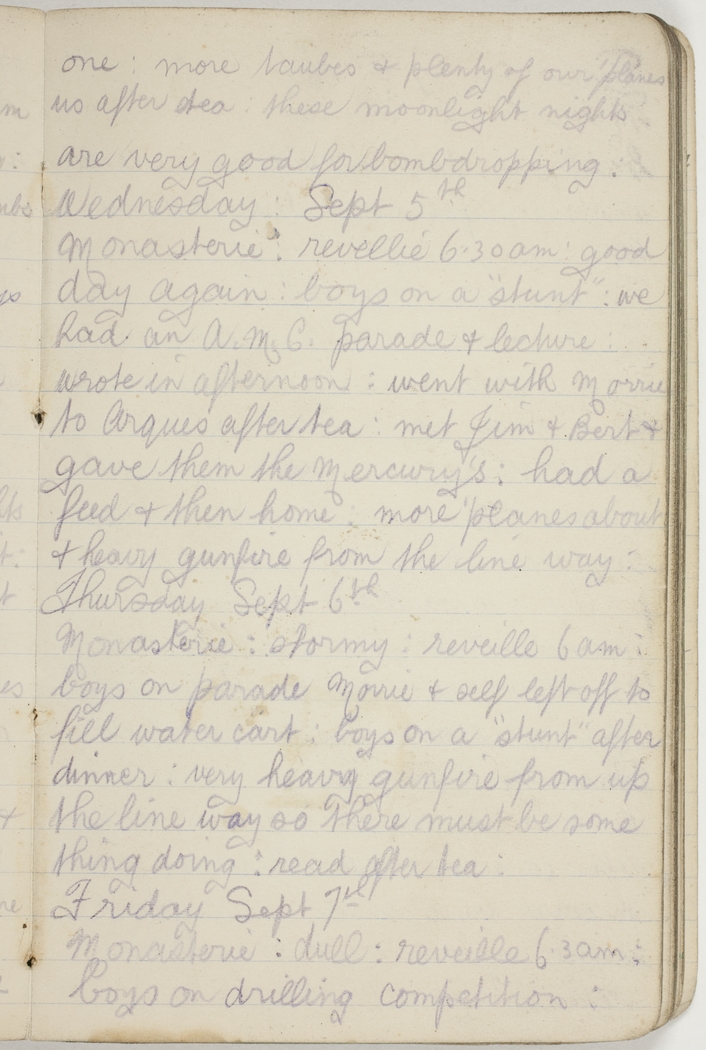 one : more taubes & plenty of our planes
us after tea : these moonlight nights
are very good for bombdropping .
Wednesday : Sept 5th
Monasterie : revellie 6.30am : good
day again : boys on a "stunt" : we
had an A.M.C. parade & lecture :
wrote in afternoon : went with Morrie
to Arques after tea : met Jim & Bert &
gave them the Mercury's : had a
feed & then home : more planes about
& heavy gunfire from the line way :
Thursday Sept 6th
Monasterie : stormy : reveille 6am :
boys on parade Morrie & self left off to
fill water cart : boys on a "stunt" after
dinner : very heavy gunfire from up
the line way so there must be some
thing doing : read after tea :
Friday Sept 7th
Monasterie : dull : reveille 6.3am :
boys on drilling competition :